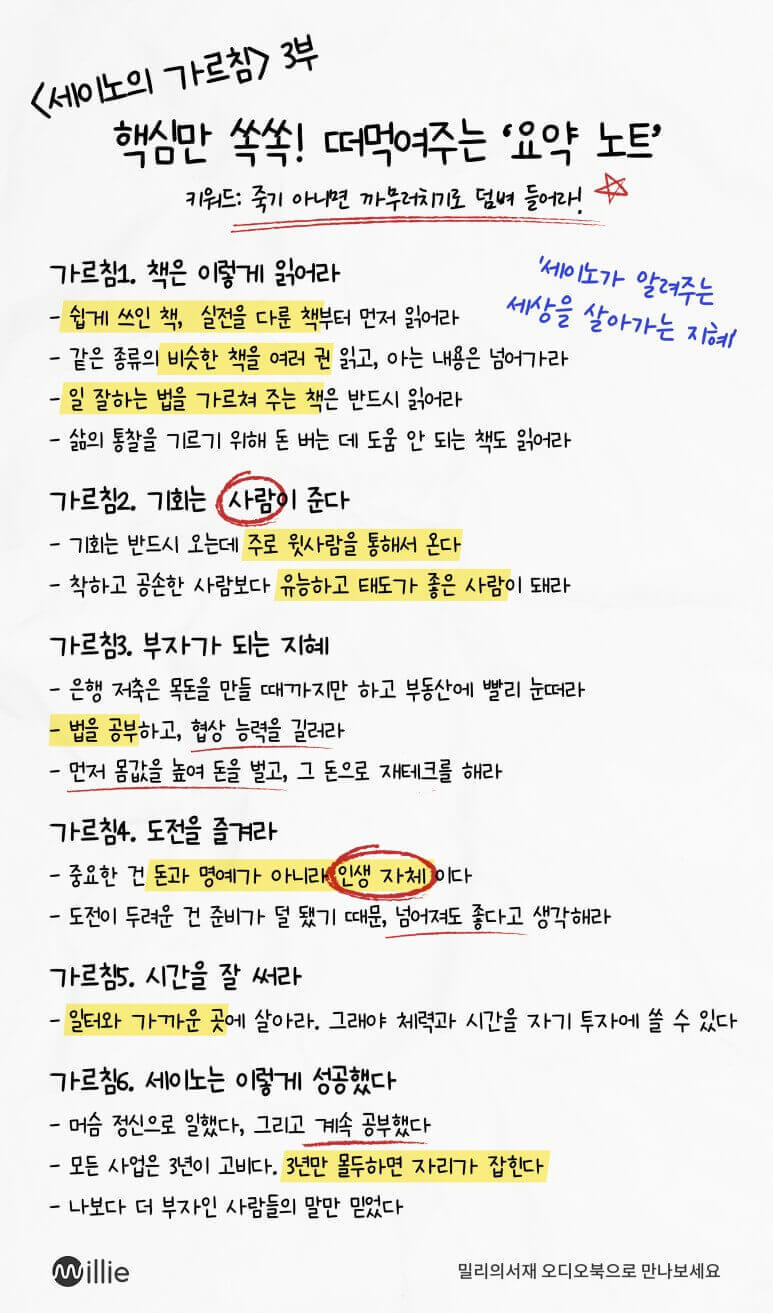 <세이노의 가르침> 3부
핵심만 쏙쏙! 떠먹여주는 '요약 노트'
키워드: 죽기 아니면 까무러치기로 덤벼 들어라!
'세이노가 알려주는
세상을 살아가는 지혜'
가르침1. 책은 이렇게 읽어라
- 쉽게 쓰인 책, 실전을 다룬 책부터 먼저 읽어라
- 같은 종류의 비슷한 책을 여러 권 읽고, 아는 내용은 넘어가라
- 일 잘하는 법을 가르쳐 주는 책은 반드시 읽어라
- 삶의 통찰을 기르기 위해 돈 버는 데 도움 안 되는 책도 읽어라
가르침2. 기회는 사람이 준다
- 기회는 반드시 오는데 주로 윗사람을 통해서 온다
- 착하고 공손한 사람보다 유능하고 태도가 좋은 사람이 돼라
가르침3. 부자가 되는 지혜
- 은행 저축은 목돈을 만들 때까지만 하고 부동산에 빨리 눈떠라
- 법을 공부하고, 협상 능력을 길러라
- 먼저 몸값을 높여 돈을 벌고, 그 돈으로 재테크를 해라
가르침4. 도전을 즐겨라
- 중요한 건 돈과 명예가 아니라 인생 자체이다
- 도전이 두려운 건 준비가 덜 됐기 때문, 넘어져도 좋다고 생각해라
가르침5. 시간을 잘 써라
- 일터와 가까운 곳에 살아라. 그래야 체력과 시간을 자기 투자에 쓸 수 있다
가르침6. 세이노는 이렇게 성공했다
- 머슴 정신으로 일했다, 그리고 계속 공부했다
- 모든 사업은 3년이 고비다. 3년만 몰두하면 자리가 잡힌다
- 나보다 더 부자인 사람들의 말만 믿었다
Millie
밀리의서재 오디오북으로 만나보세요